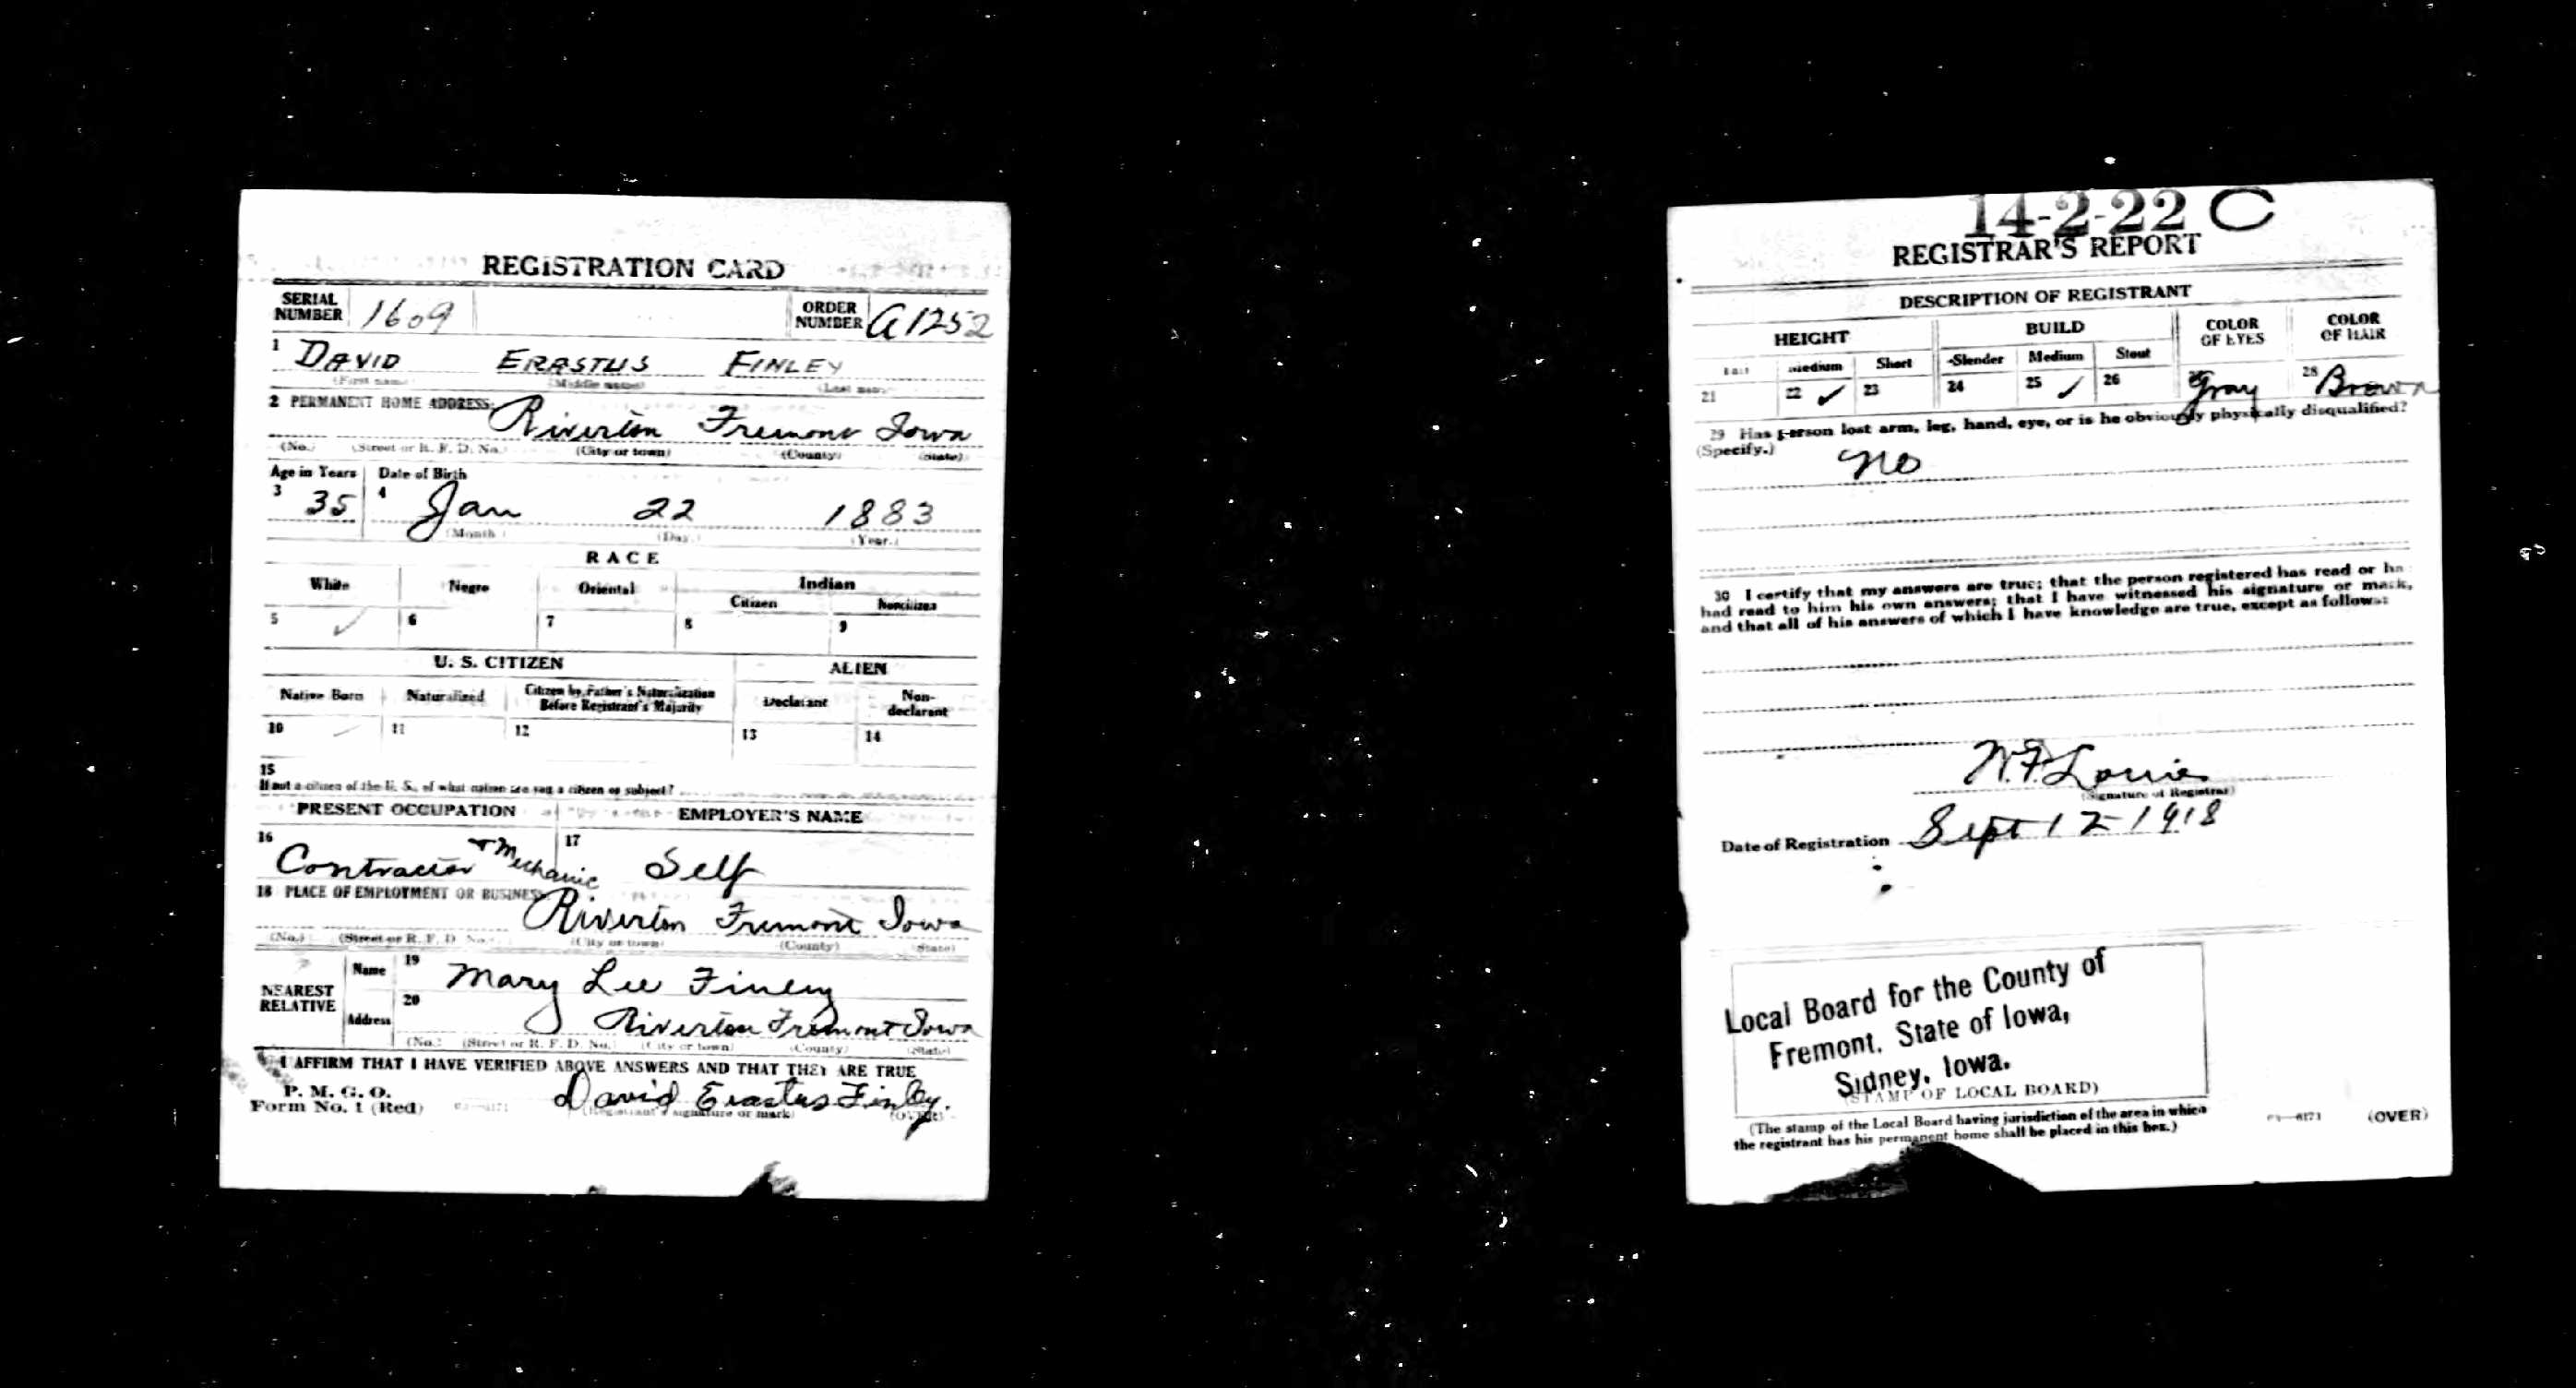 REGISTRATION CARD
SERIAL NUMBER 1609 ORDER NUMBER A1252
1 DAVID ERASTUS FINLEY
(First name) (Middle name) (Last name)
2 PERMANENT HOME ADDRESS: Riverton Fremont Iowa
(No.) (Street or R. F. D. No.) (City or town) (County) (State)
Age in Years Date of Birth
3 35 4 Jan 22 1883
(Month.) (Day.) (Year.)
RACE
White Negro Oriental Indian
Citizen Noncitizen
5 ✓ 6 7 8 9
U. S. CITIZEN ALIEN
Native Born Naturalized Citizen by Father's Naturalization Before Registrant's Majority Declarant Non-declarant
10 ✓ 11 12 13 14
15
If not a citizen of the U. S., of what nation are you a citizen or subject?
PRESENT OCCUPATION EMPLOYER'S NAME
16 Contractor + Mechanic 17 Self
18 PLACE OF EMPLOYMENT OR BUSINESS: Riverton Fremont Iowa
(No.) (Street or R. F. D. No.) (City or town) (County) (State)
NEAREST RELATIVE Name 19 Mary Lee Finley
Address 20 Riverton Fremont Iowa
(No.) (Street or R. F. D. No.) (City or town) (County) (State)
I AFFIRM THAT I HAVE VERIFIED ABOVE ANSWERS AND THAT THEY ARE TRUE
P. M. G. O.
Form No. 1 (Red) David Erastus Finley.
(Registrant's signature or mark) (OVER)
14-2-22 C
REGISTRAR'S REPORT
DESCRIPTION OF REGISTRANT
HEIGHT BUILD COLOR OF EYES COLOR OF HAIR
Tall Medium Short Slender Medium Stout
21 22 ✓ 23 24 25 ✓ 26 Gray 28 Brown
29 Has person lost arm, leg, hand, eye, or is he obviously physically disqualified?
(Specify.) no
30 I certify that my answers are true; that the person registered has read or has
had read to him his own answers; that I have witnessed his signature or mark,
and that all of his answers of which I have knowledge are true, except as follows:
(Signature of Registrar)
Date of Registration Sept 12 1918
Local Board for the County of
Fremont, State of Iowa,
Sidney, Iowa.
(STAMP OF LOCAL BOARD)
(The stamp of the Local Board having jurisdiction of the area in which
the registrant has his permanent home shall be placed in this box.)
(OVER)